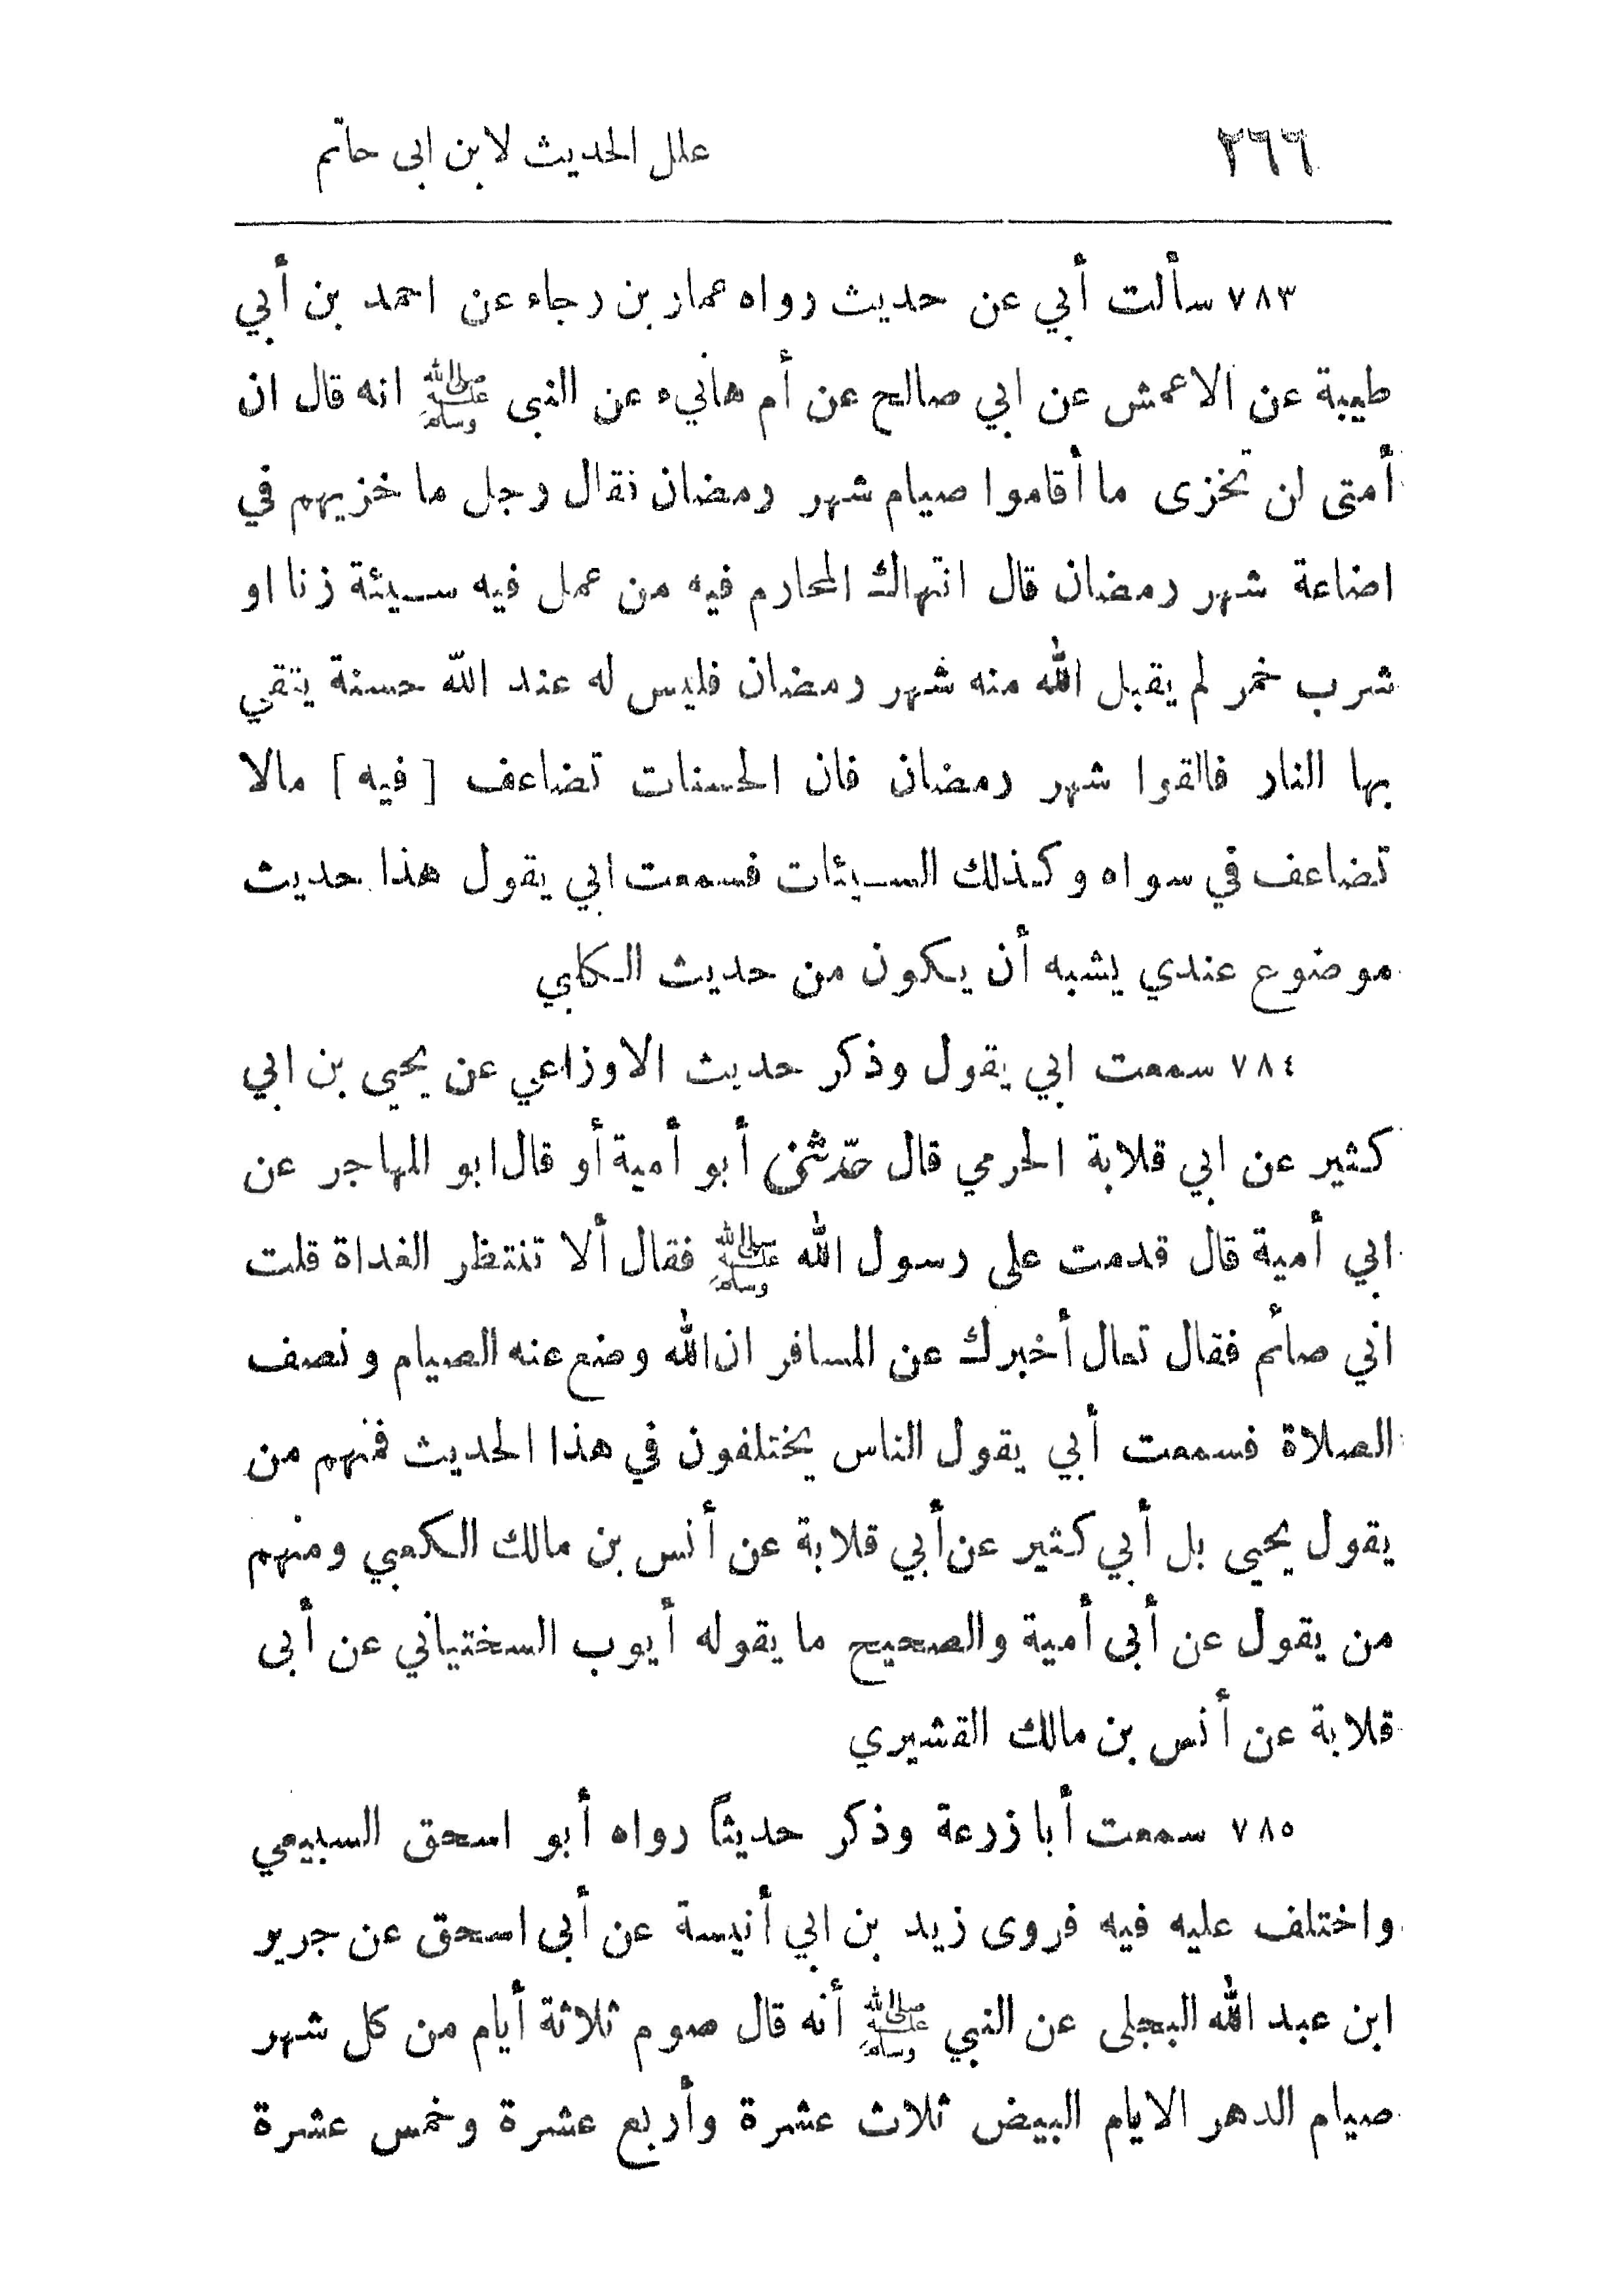 ٢٦٦ علل الحديث لابن ابى حاتم
٧٨٣ سألت أبي عن حديث رواه عمار بن رجاء عن احمد بن أبي
طيبة عن الاعمش عن ابي صالح عن أم هانيء عن النبى ﷺ انه قال ان
أمتى لن تخزى ما أقاموا صيام شهر رمضان نقال رجل ما خزيهم في
اضاعة شهر رمضان قال انتهاك المحارم فيه من عمل فيه سيئة زنا او
شرب خمر لم يقبل الله منه شهر رمضان فليس له عند الله حسنة يتقي
بها النار فالقوا شهر رمضان فان الحسنات تضاعف [ فيه ] مالا
تضاعف في سواه وكذلك السيئات فسمعت ابي يقول هذا حديث
موضوع عندي يشبه أن يكون من حديث الكابي
٧٨٤ سمعت ابي يقول وذكر حديث الاوزاعي عن يحيى بن ابي
كثير عن ابي قلابة الحرمي قال حدّثنى أبو أمية أو قال ابو المهاجر عن
ابي أمية قال قدمت على رسول الله ﷺ فقال ألا تنتظر الغداة قلت
اني صائم فقال تعال أخبرك عن المسافر ان الله وضع عنه الصيام ونصف
الصلاة فسمعت أبي يقول الناس يختلفون في هذا الحديث فمنهم من
يقول يحيى بل أبي كثير عن أبي قلابة عن أنس بن مالك الكعبي ومنهم
من يقول عن أبى أمية والصحيح ما يقوله أيوب السختياني عن أبى
قلابة عن أنس بن مالك القشيري
٧٨٥ سمعت أبا زرعة وذكر حديثاً رواه أبو اسحق السبيعي
واختلف عليه فيه فروى زيد بن ابي أنيسة عن أبى اسحق عن جرير
ابن عبد الله البجلى عن النبي ﷺ أنه قال صوم ثلاثة أيام من كل شهر
صيام الدهر الايام البيض ثلاث عشرة وأربع عشرة وخمس عشرة